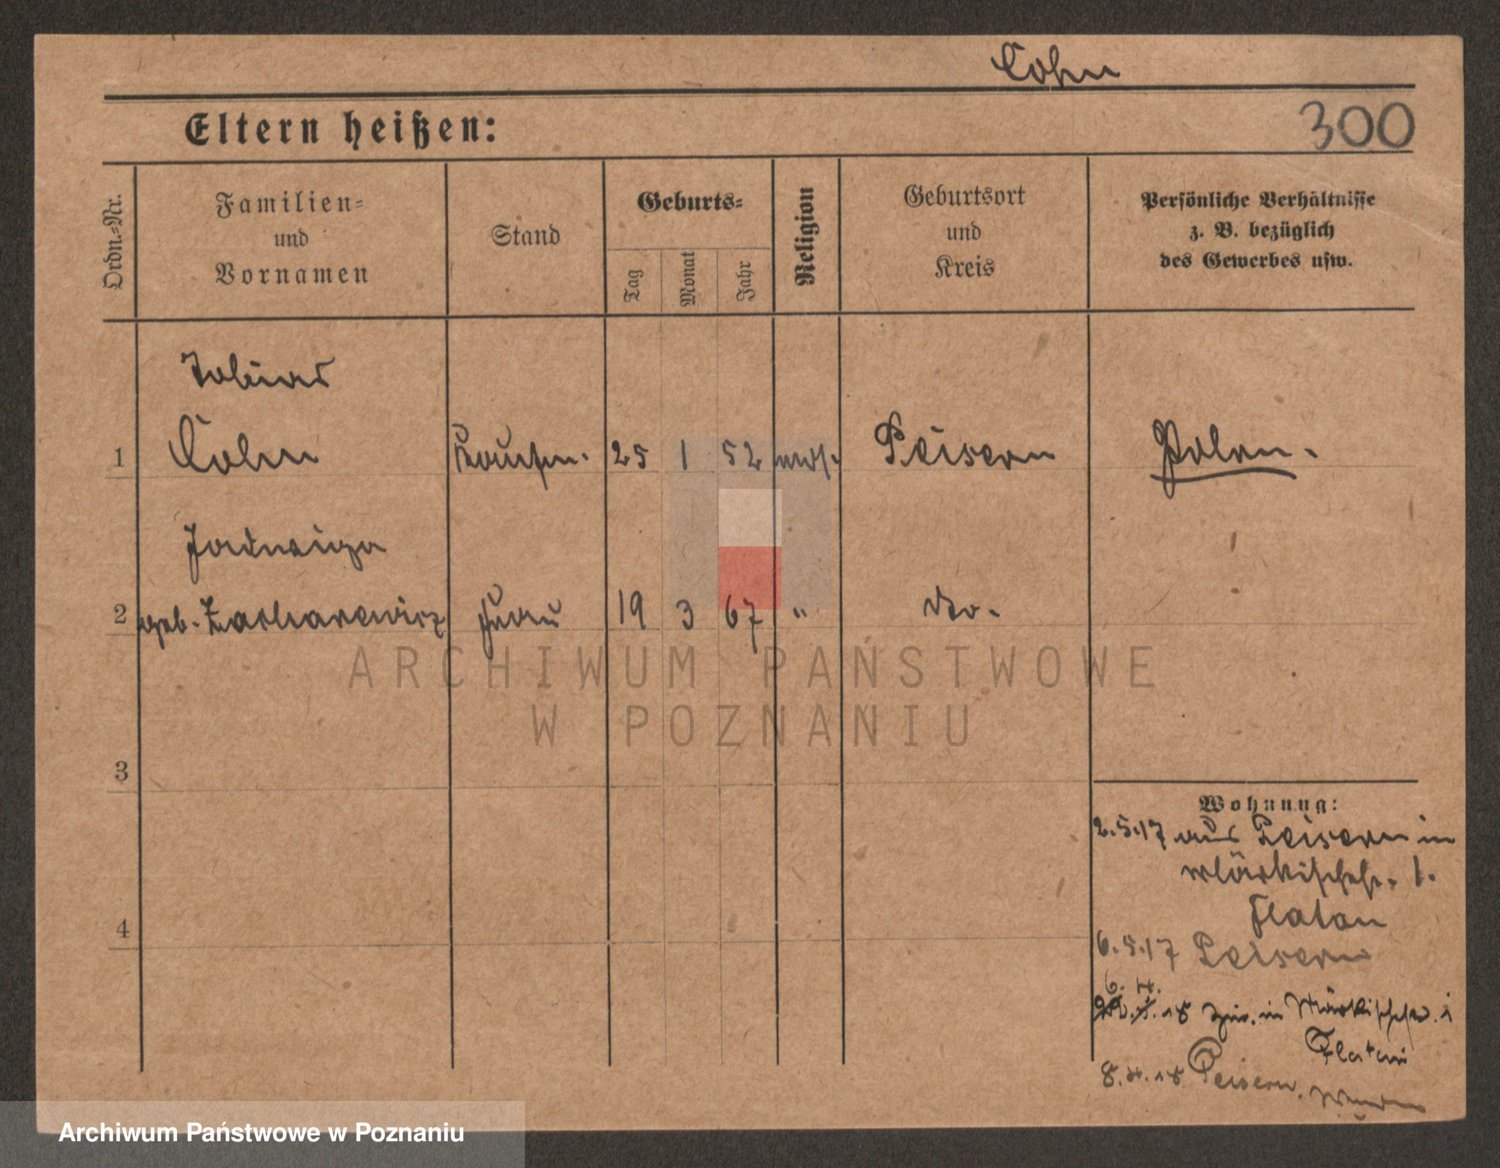 Cohn
Eltern heißen:
300
Ordn.-Nr.
Familien-
und
Vornamen
Stand
Geburts-
Tag
Monat
Jahr
Religion
Geburtsort
und
Kreis
Persönliche Verhältnisse
z. B. bezüglich
des Gewerbes usw.
Tobias
1 Cohn Kaufm. 25 1 52 mos. Peisern Polen.
Jadwiga
2 geb. Zacharewicz Frau 19 3 67 " do.
3
Wohnung:
2.5.17 aus Peisern in
Märkischstr. 1.
Flatau
4
6.5.17 Peisern
6. 4.
18 in Märkischstr. 1
Flatau
8.4.18 Peisern.
ARCHIWUM PAŃSTWOWE
W POZNANIU
Archiwum Państwowe w Poznaniu